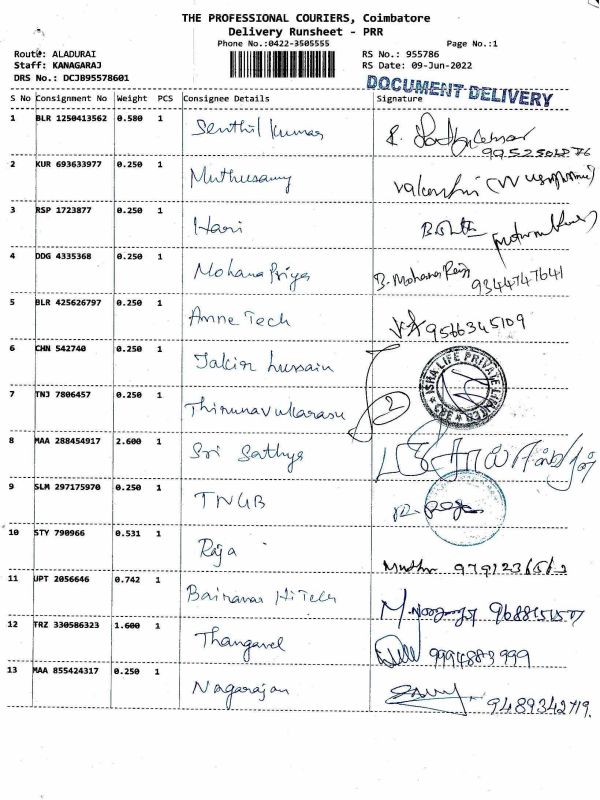 THE PROFESSIONAL COURIERS, Coimbatore
Delivery Runsheet - PRR
Phone No.:0422-3505555
Page No.:1
Route: ALADURAI
RS No.: 955786
Staff: KANAGARAJ
RS Date: 09-Jun-2022
DRS No.: DCJB95578601
DOCUMENT DELIVERY
S No Consignment No Weight PCS Consignee Details Signature
1 BLR 1250413562 0.580 1 Senthil Kumar
2 KUR 693633977 0.250 1 Muthusamy
3 RSP 1723877 0.250 1 Hari
4 DDG 4335368 0.250 1 Mohana Priya B. Mohana Priya 9344747641
5 BLR 425626797 0.250 1 Anne Tech 9566345109
6 CHN 542740 0.250 1 Jakir hussain
ISHA LIFE PRIVATE LIMITED
7 TNJ 7806457 0.250 1 Thirunavukarasu 2
8 MAA 288454917 2.600 1 Sri Sathya
9 SLM 297175970 0.250 1 TNGB
10 STY 790966 0.531 1 Raja
11 UPT 2056646 0.742 1 HiTech
12 TRZ 330586323 1.600 1 Thangavel 9994883999
13 MAA 855424317 0.250 1 Nagarajan 9489342719.